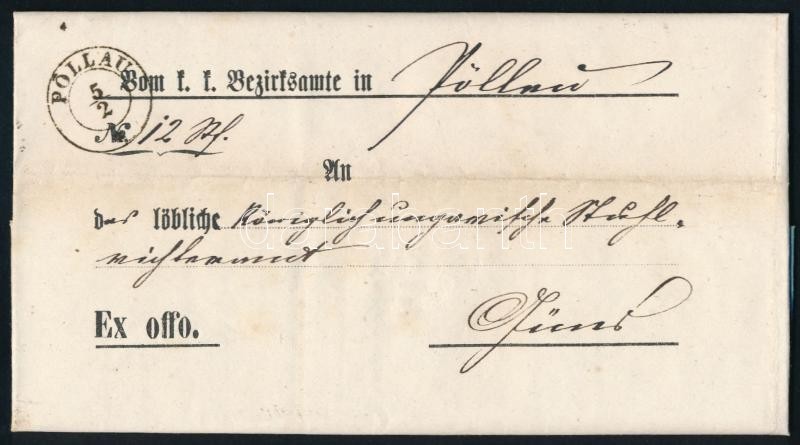 PÖLLAU
5/2
Vom k. k. Bezirksamte in Pöllau
No. 12 Str.
An
das löbliche königlich ungarische Stuhl-
richteramt
Ex offo.
Güns
darabanth